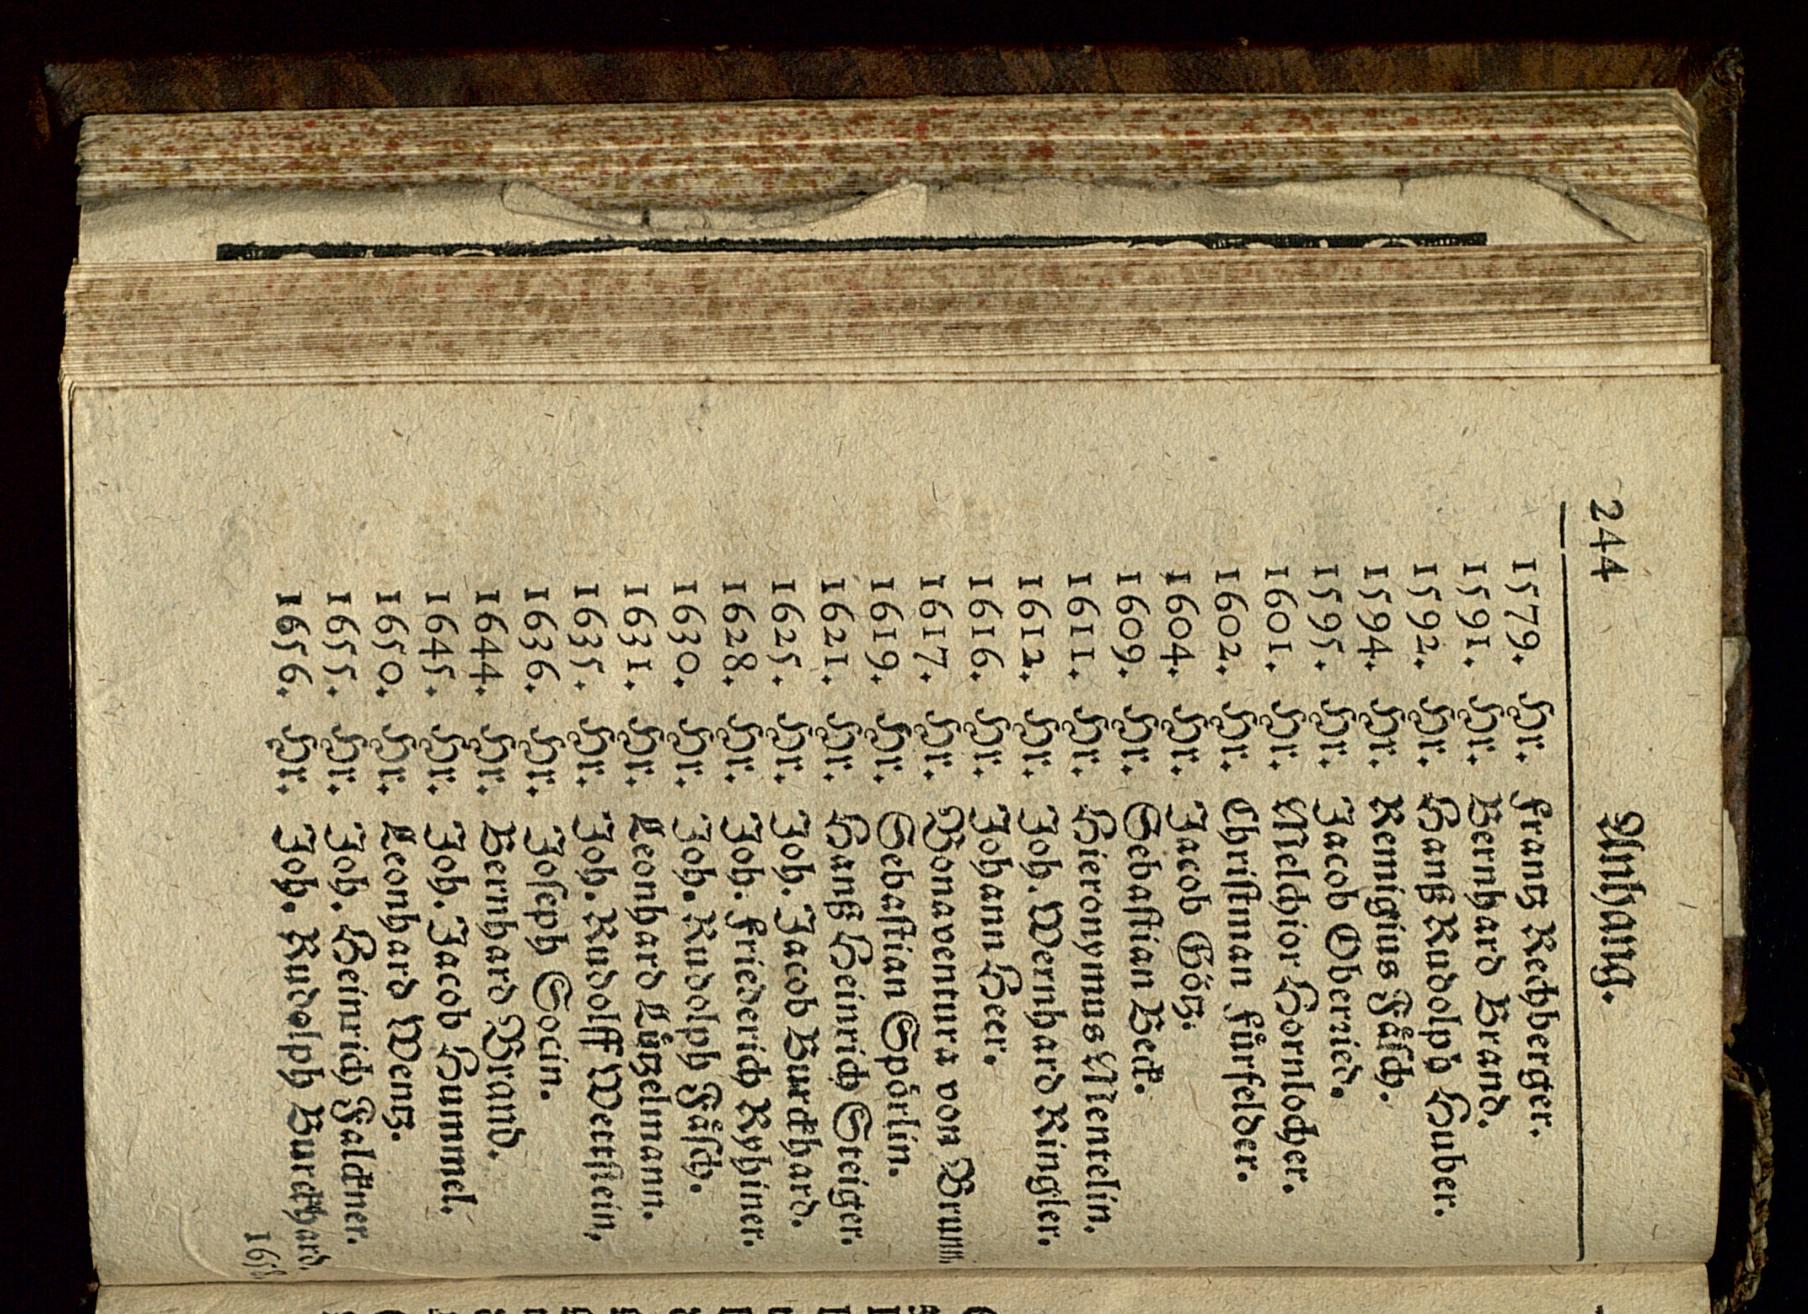 244
Anhang.
1579. Hr. Frantz Rechberger.
1591. Hr. Bernhard Brand.
1592. Hr. Hanß Rudolph Huber.
1594. Hr. Remigius Fåsch.
1595. Hr. Jacob Oberried.
1601. Hr. Melchior Hornlocher.
1602. Hr. Christman Fůrfelder.
1604. Hr. Jacob Götz.
1609. Hr. Sebastian Beck.
1611. Hr. Hieronymus Mentelin.
1612. Hr. Joh. Wernhard Ringler.
1616. Hr. Johann Heer.
1617. Hr. Bonaventura von Brunn.
1619. Hr. Sebastian Spörlin.
1621. Hr. Hanß Heinrich Steiger.
1625. Hr. Joh. Jacob Burckhard.
1628. Hr. Joh. Friederich Ryhiner.
1630. Hr. Joh. Rudolph Fåsch.
1631. Hr. Leonhard Lůtzelmann.
1635. Hr. Joh. Rudolff Wettstein.
1636. Hr. Joseph Socin.
1644. Hr. Bernhard Brand.
1645. Hr. Joh. Jacob Hummel.
1650. Hr. Leonhard Wentz.
1655. Hr. Joh. Heinrich Falckner.
1656. Hr. Joh. Rudolph Burckhard.
1658